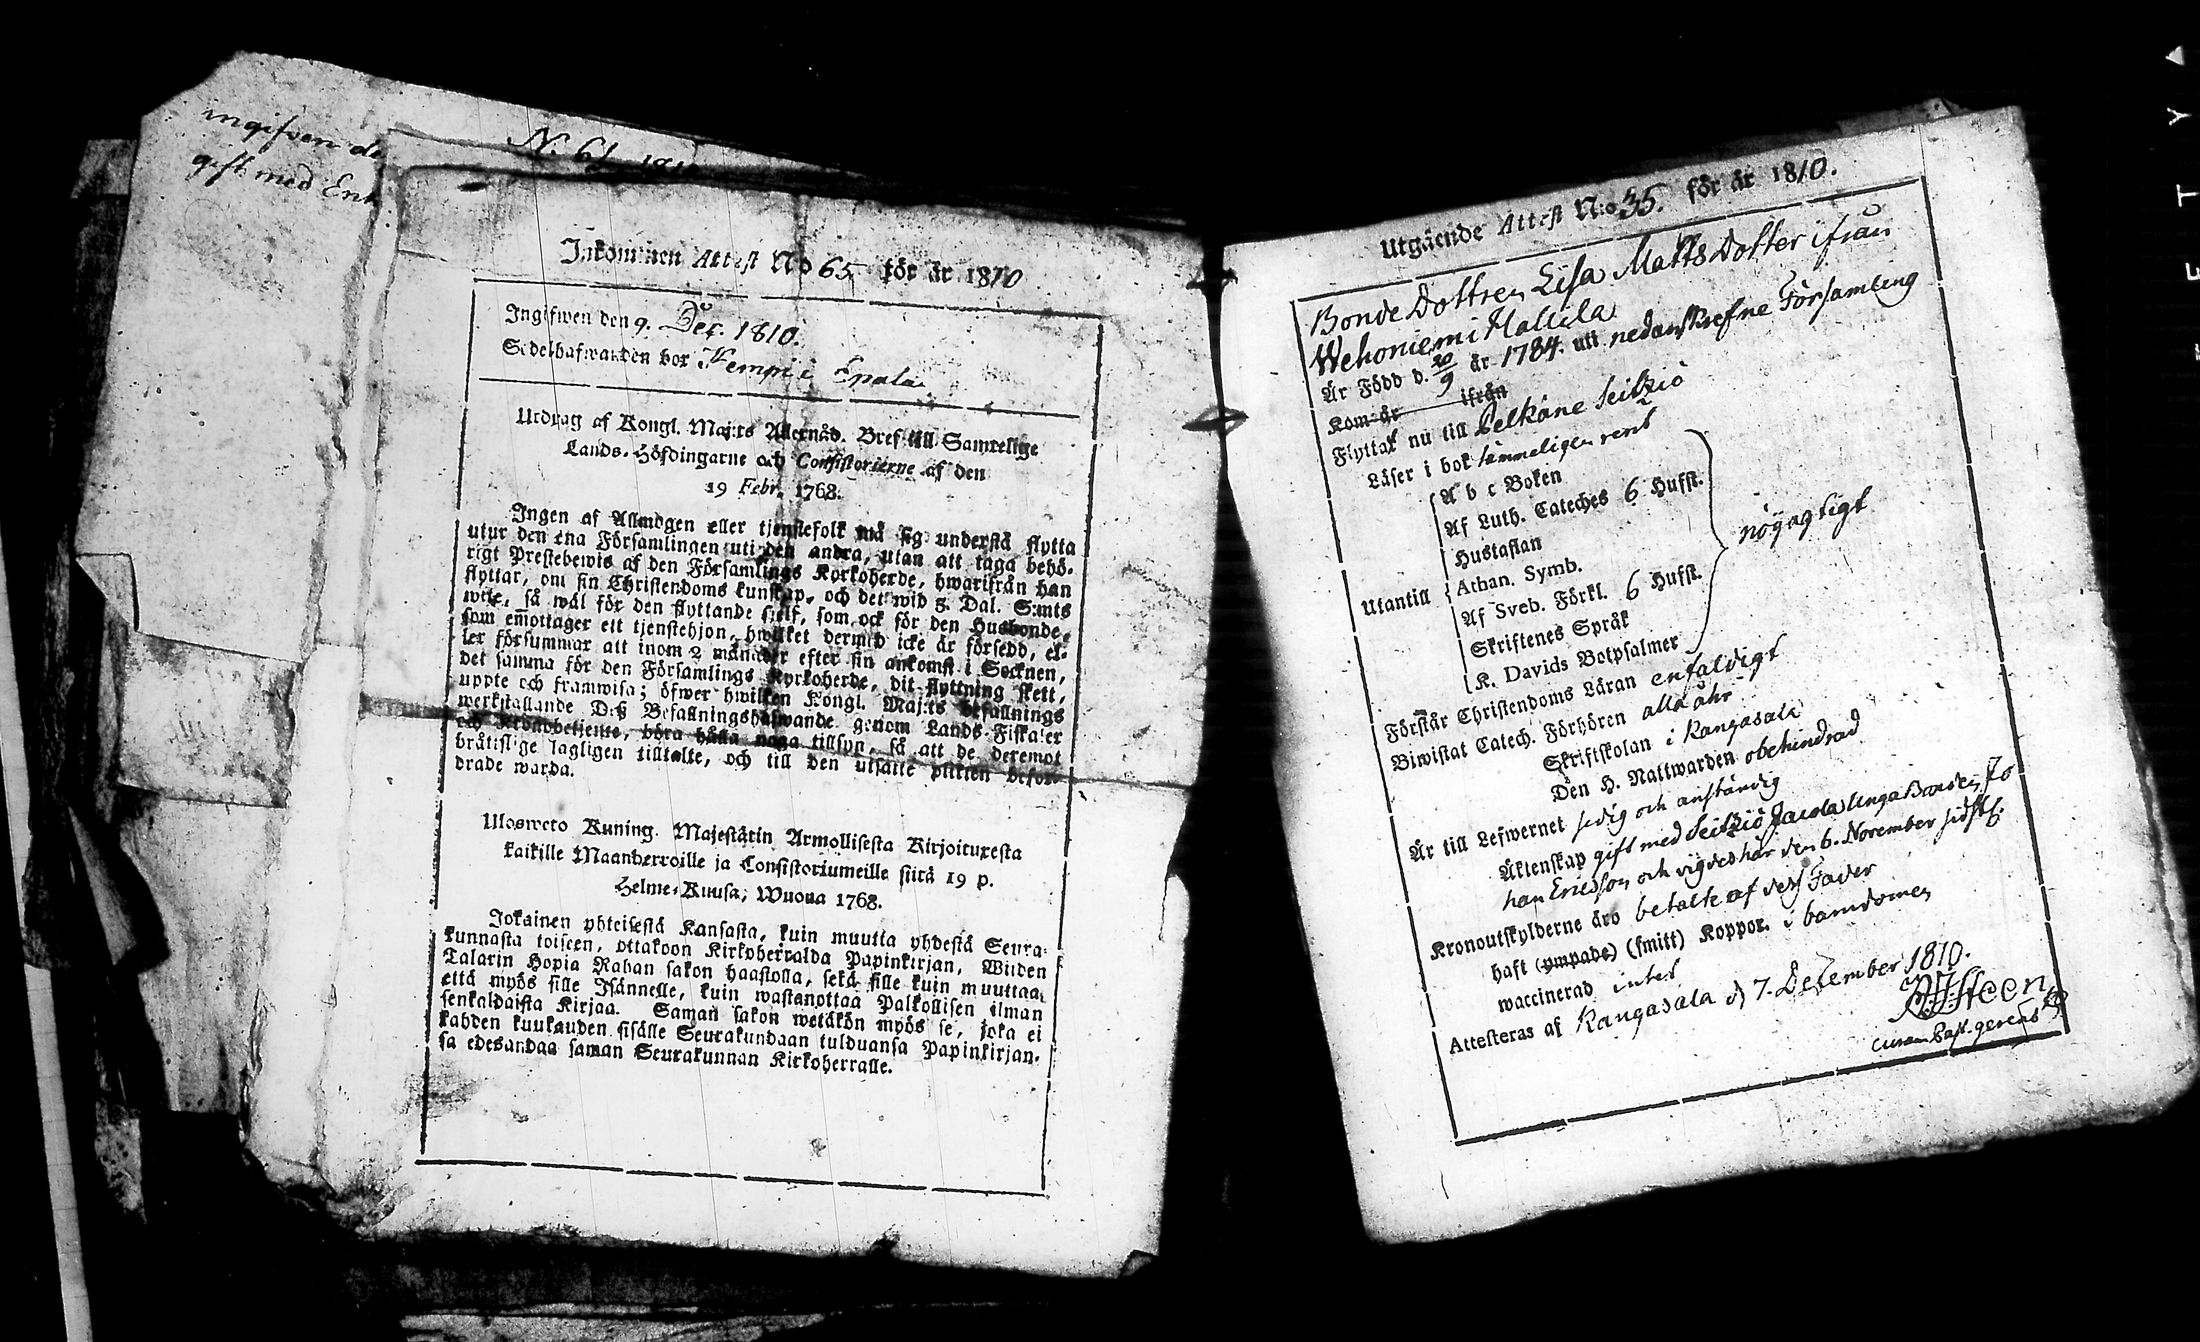 ingifven de
gift med Enk
N. 61 1810
Inkommen Attest No 65 för år 1810
Ingifwen den 9. Dec. 1810.
Sedelhafwanden bor Kempi i Epala
Utdrag af Kongl. Maj:ts Allernåd. Bref till Samtelige
Lands-Höfdingarne och Consistorierne af den
19 Febr. 1768.
Ingen af Allmogen eller tjenstefolk må sig understå flytta
utur den ena Församlingen uti den andra, utan att taga behö-
rigt Prestebewis af den Församlings Kyrkoherde, hwarifrån han
flyttar, om sin Christendoms kunskap, och det wid 3. Dal. S:mts
wite, så wäl för den flyttande sjelf, som ock för den Husbonde,
som emottager ett tjenstehjon, hwilket dermed icke är försedd, el-
ler försummar att inom 2 månader efter sin ankomst i Socknen,
det samma för den Församlings Kyrkoherde, dit flyttning skett,
uppte och framwisa; öfwer hwilken Kongl. Maj:ts befallnings
werkställande Deß Befallningshafwande genom Lands-Fiskaler
och Kronobetjente, böra hålla noga tillsyn, så att de deremot
bråtislige lagligen tilltalte, och till den utsatte plikten befor-
drade warda.
Ulosweto Kuning. Majestätin Armollisesta Kirjoituxesta
kaikille Maanherroille ja Consistoriumeille siitä 19 p.
Helme-Kuusa, Wuona 1768.
Jokainen yhteisestä Kansasta, kuin muutta yhdestä Seura-
kunnasta toiseen, ottakoon Kirkoherralda Papinkirjan, Wiiden
Talarin Hopia Rahan sakon haastolla, sekä sille kuin muuttaa,
että myös sille Isännelle, kuin wastanottaa Palkollisen ilman
senkaldaista Kirjaa. Saman sakon wetäkön myös se, joka ei
kahden kuukauden sisälle Seurakundaan tulduansa Papinkirjan-
sa edesandaa saman Seurakunnan Kirkoherralle.
Utgående Attest N:o 35. för år 1810.
Bonde Dottren Lisa Matts Dotter ifrån
Wehoniemi Hallila
Är Född d. 20/9 år 1784. uti nedanskrefne Församling
Kom år ifrån
Flyttat nu till Pelkäne Seitziö
Läser i bok sammeligen rent
Utantill
A b c Boken
Af Luth. Cateches 6 Hufst.
Hustaflan
Athan. Symb.
Af Sveb. Förkl. 6 Hufst.
Skriftenes Språk
K. Davids Botpsalmer
nöyagtigt
Förstår Christendoms Läran enfaldigt
Biwistat Catech. Förhören alla åhr
Skriftskolan i Kangasala
Den H. Nattwarden obehindrad
Är till Lefwernet sedig och anständig
Äktenskap gift med Seitziö Jacola Unga Bonden Jo
han Ericsson och vigdes här den 6. November sidstl.
Kronoutskylderne äro betalte af dess Fader
haft (ympade) (smitt) Koppor. i barndomen
waccinerad intet
Attesteras af Kangasala d 7. December 1810.
Steen
curam Past. gerens